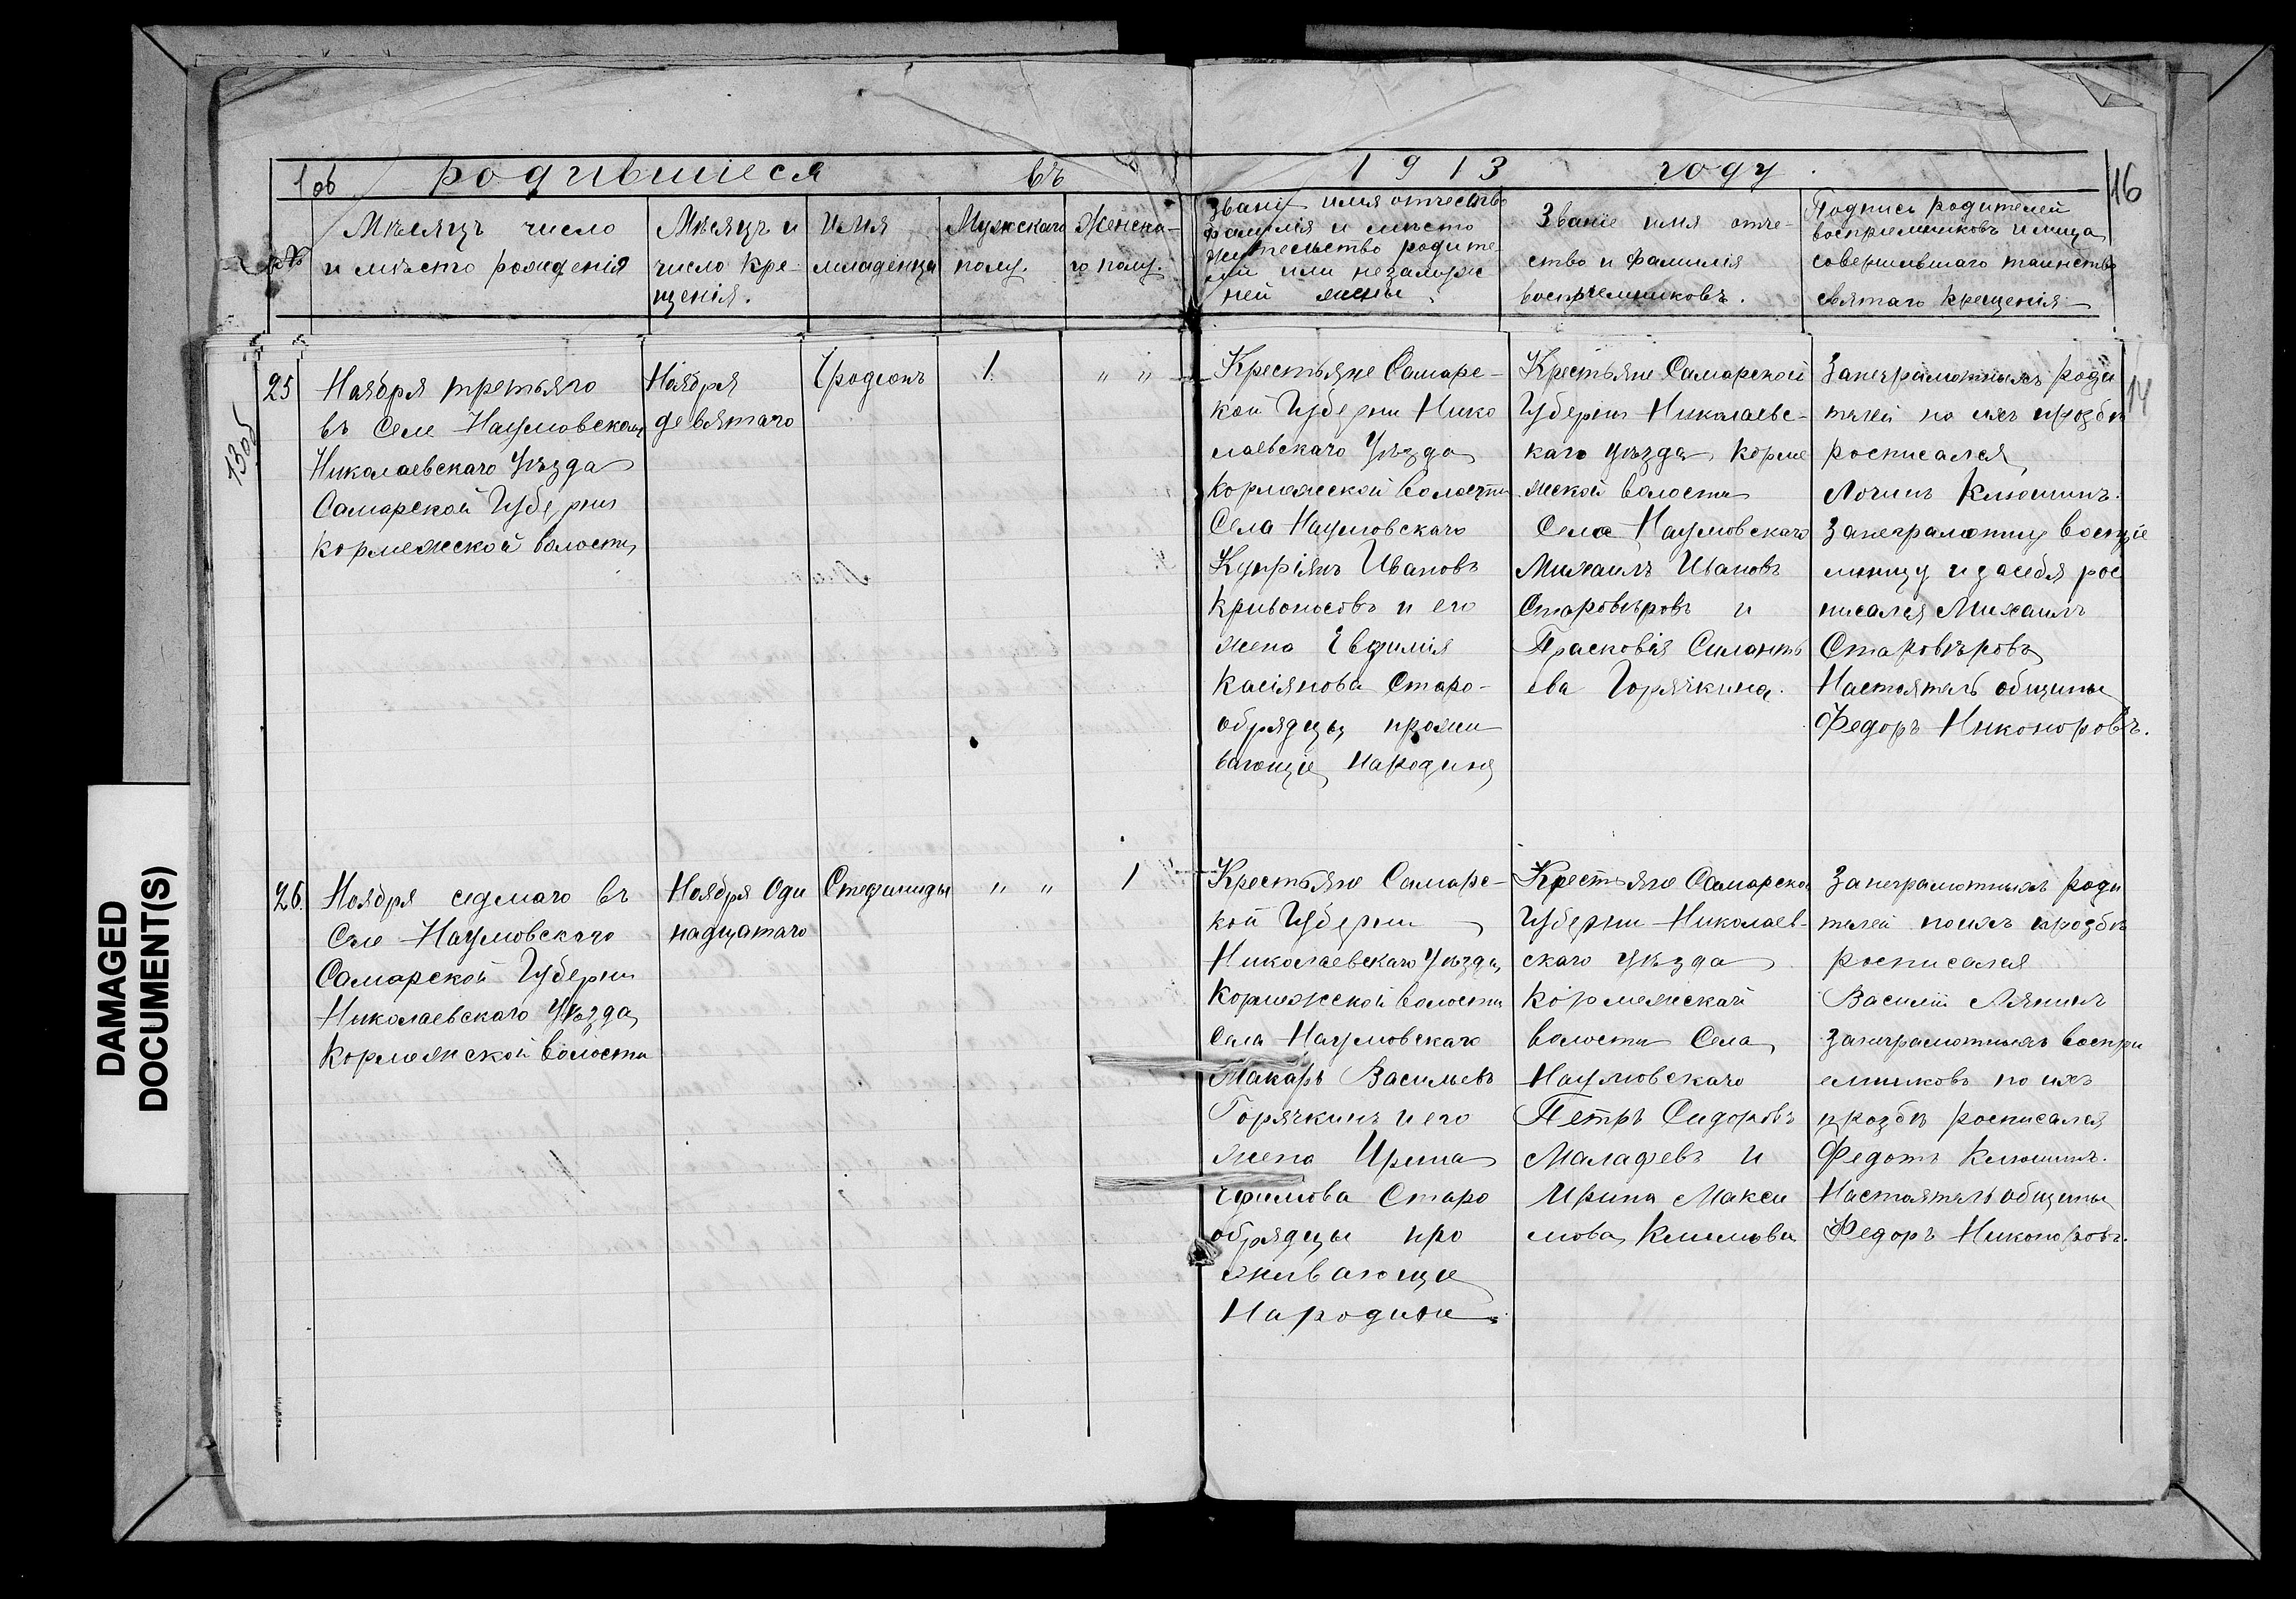 1 об родившиеся въ 1913 году.
16
№
Мѣсяцъ число
и мѣсто рожденія
Мѣсяцъ и
число Кре-
щенія.
Имя
младенца
Мужскаго
полу.
Женска-
го полу.
Званіе имя отчество
фамилія и мѣсто
жительство родите
лей или незамуж
ней жены.
Званіе имя отче-
ство и фамилія
воспріемниковъ.
Подпись родителей
воспріемниковъ и лица
совершившаго таинство
святаго крещенія
13об
14
25
Ноября третьяго
въ Селе Наумовскомъ
Николаевскаго Уѣзда
Самарской Губерни
Кормежской волости
Ноября
девятаго
Іродіонъ
1
" "
Крестьяне Самарс-
кой Губерни Нико
лаевскаго Уѣзда
Кормежской волости
Села Наумовскаго
Купріянъ Ивановъ
Кривоносовъ и его
жена Евфимія
Касіянова Старо-
обрядцы прожи
вающіе Народине
Крестьяне Самарской
Губерни Николаевс-
каго уѣзда Корме
жской волости
Села Наумовскаго
Михаилъ Ивановъ
Старовѣровъ и
Прасковія Силанть
ева Горячкина.
Занеграмотныхъ роди
телей по ихъ прозбѣ
росписался
Логинъ Клюшинъ.
Занеграмотную воспріе
мницу и засебя рос
писался Михаилъ
Старовѣровъ
Настоятель общины
Федоръ Никоноровъ.
26.
Ноября седмаго въ
Селе Наумовскаго
Самарской Губерни
Николаевскаго Уѣзда
Кормежской волости
Ноября Оди
надцатаго
Стефаниды
" "
1
Крестьяне Самарс-
кой Губерни
Николаевскаго Уѣзда
Кормежской волости
Села Наумовскаго
Макаръ Васильевъ
Горячкинъ и его
жена Ирина
Ефимова Старо
обрядцы про
живающіе
Народине.
Крестьяне Самарской
Губерни Николаев-
скаго уѣзда
Кормежской
волости Села
Наумовскаго
Петръ Сидоровъ
Малафевъ и
Ирина Макси
мова Климова
Занеграмотныхъ роди
телей поихъ прозбѣ
росписался
Василій Лянинъ
Занеграмотныхъ воспри
емниковъ по ихъ
прозбѣ росписался
Федотъ Клюшинъ.
Настоятель общины
Федоръ Никоноровъ.
DAMAGED
DOCUMENT(S)